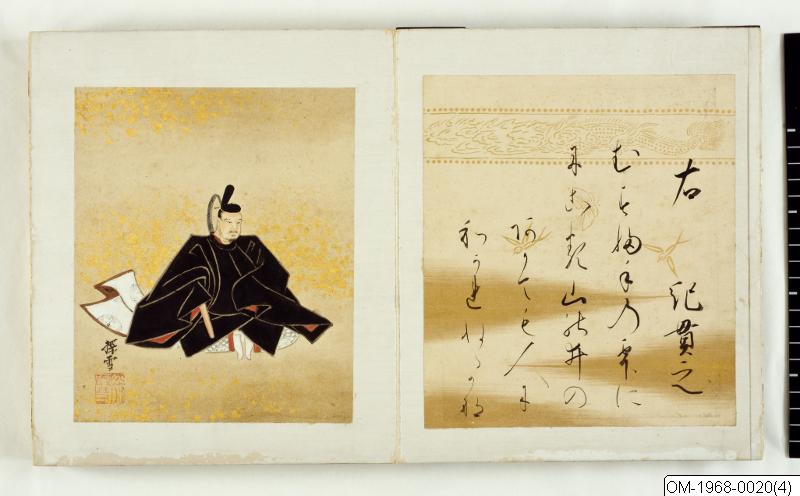 右　紀貫之
むすふ手の雫に
にこる山の井の
あかても人に
わかれぬるかな
探雪
OM-1968-0020(4)